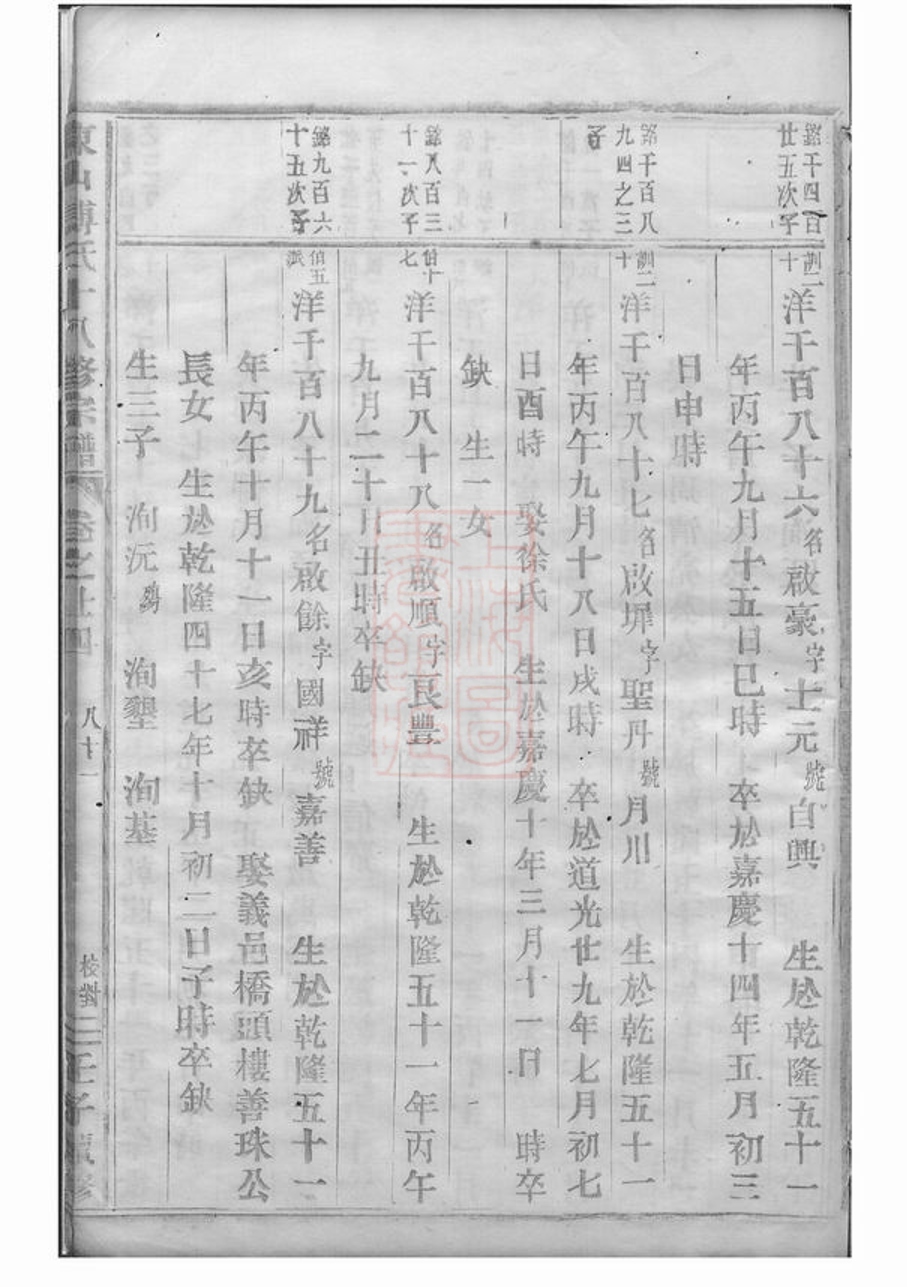 銘千四百
廿五次子
訓二
十
洋千百八十六名啟豪字士元號自興 生於乾隆五十一
年丙午九月十五日巳時 卒於嘉慶十四年五月初三
日申時
銘千百八
九四之三
子
訓二
十
洋千百八十七名啟墀字聖丹號月川 生於乾隆五十一
年丙午九月十八日戌時 卒於道光廿九年七月初七
日酉時 娶徐氏 生於嘉慶十年三月十一日 時卒
缺 生一女
銘八百三
十一次子
伯十
七
洋千百八十八名啟順字良豐 生於乾隆五十一年丙午
九月二十日丑時卒缺
銘九百六
十五次子
伯五
派
洋千百八十九名啟餘字國祥號嘉善 生於乾隆五十一
年丙午十月十一日亥時卒缺 娶義邑橋頭樓善珠公
長女 生於乾隆四十七年十月初二日子時卒缺
生三子 洵沅殤 洵墾 洵基
東山傅氏十八修宗譜 卷之廿四 八十一 校對 壬子重修
上海圖書館藏